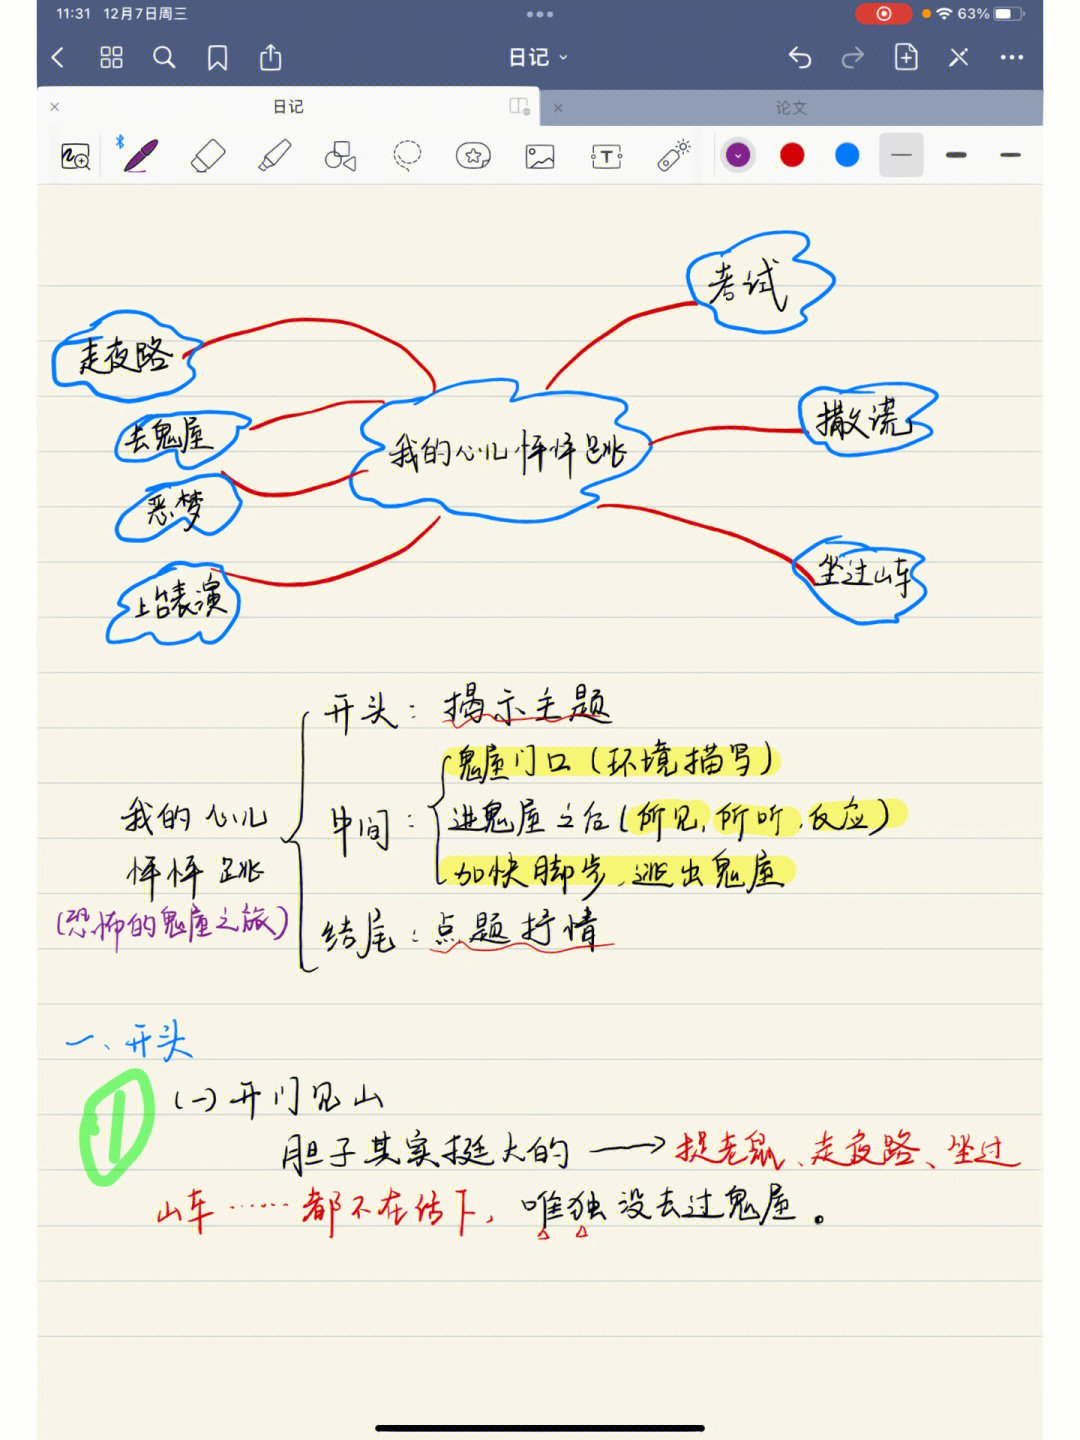 11:31 12月7日周三
63%
日记
日记
论文
考试
走夜路
撒谎
去鬼屋
我的心儿怦怦跳
恶梦
坐过山车
上台表演
开头：揭示主题
鬼屋门口（环境描写）
我的心儿
中间：进鬼屋之后（所见、所听、反应）
怦怦跳
加快脚步、逃出鬼屋
(恐怖的鬼屋之旅)
结尾：点题抒情
一、开头
① (一)开门见山
胆子其实挺大的 → 捉老鼠、走夜路、坐过
山车……都不在话下，唯独没去过鬼屋。